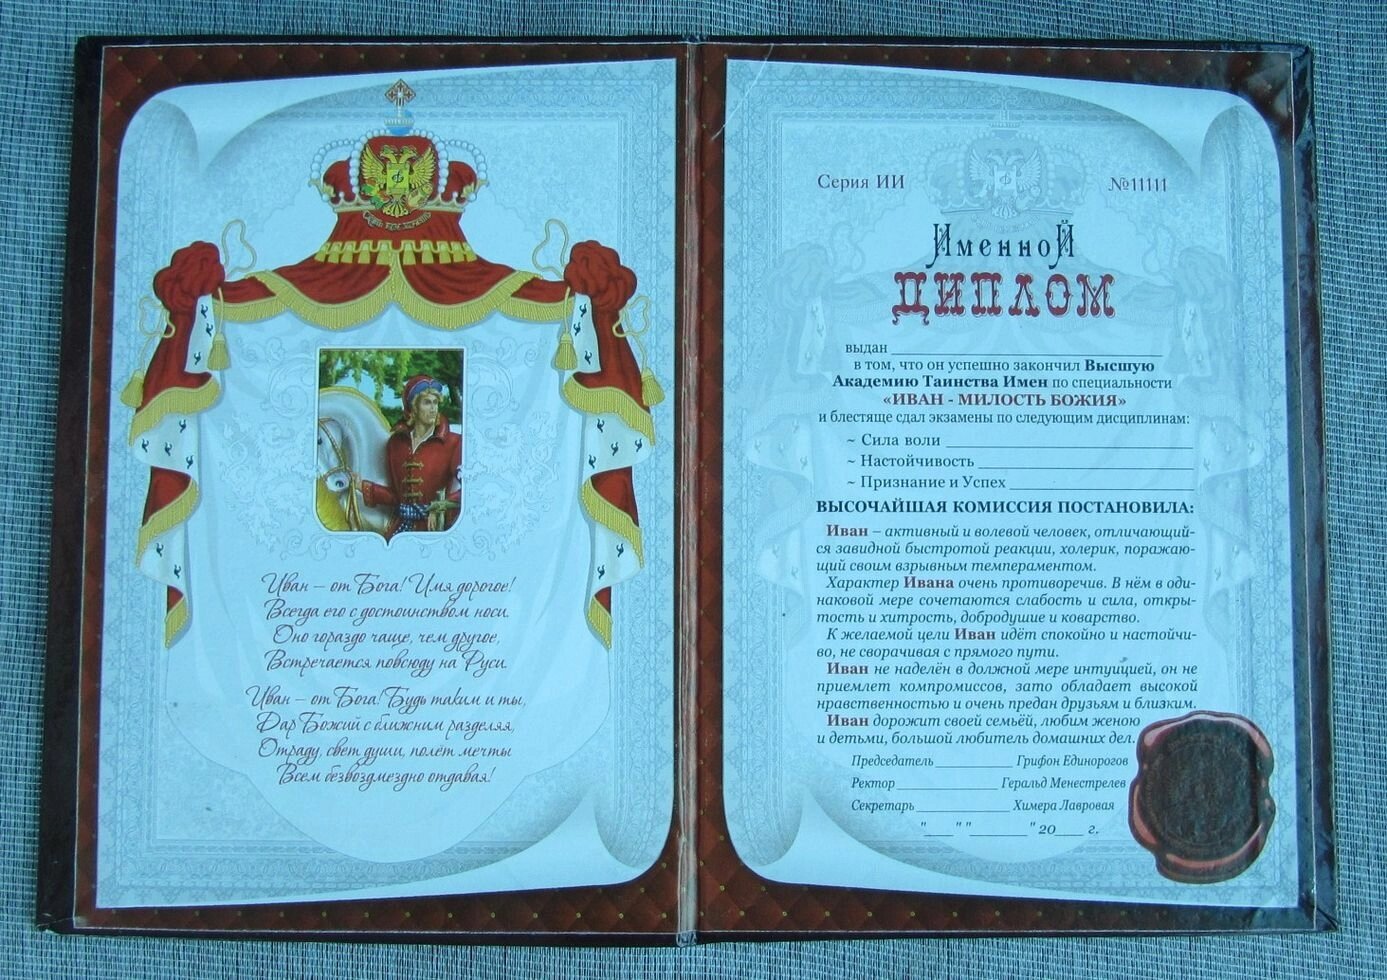 Иван – от Бога! Имя дорогое!
Всегда его с достоинством носи.
Оно гораздо чаще, чем другое,
Встречается повсюду на Руси.
Иван – от Бога! Будь таким и ты,
Дар Божий с ближним разделяя,
Отраду, свет души, полёт мечты
Всем безвозмездно отдавая!
Серия ИИ №11111
Именной
ДИПЛОМ
выдан
в том, что он успешно закончил Высшую
Академию Таинства Имен по специальности
«ИВАН - МИЛОСТЬ БОЖИЯ»
и блестяще сдал экзамены по следующим дисциплинам:
~ Сила воли
~ Настойчивость
~ Признание и Успех
ВЫСОЧАЙШАЯ КОМИССИЯ ПОСТАНОВИЛА:
Иван – активный и волевой человек, отличающий-
ся завидной быстротой реакции, холерик, поражаю-
щий своим взрывным темпераментом.
Характер Ивана очень противоречив. В нём в оди-
наковой мере сочетаются слабость и сила, откры-
тость и хитрость, добродушие и коварство.
К желаемой цели Иван идёт спокойно и настойчи-
во, не сворачивая с прямого пути.
Иван не наделён в должной мере интуицией, он не
приемлет компромиссов, зато обладает высокой
нравственностью и очень предан друзьям и близким.
Иван дорожит своей семьёй, любим женою
и детьми, большой любитель домашних дел.
Председатель ____________ Грифон Единорогов
Ректор ____________ Геральд Менестрелев
Секретарь ____________ Химера Лавровая
"___" "_______" 20___ г.